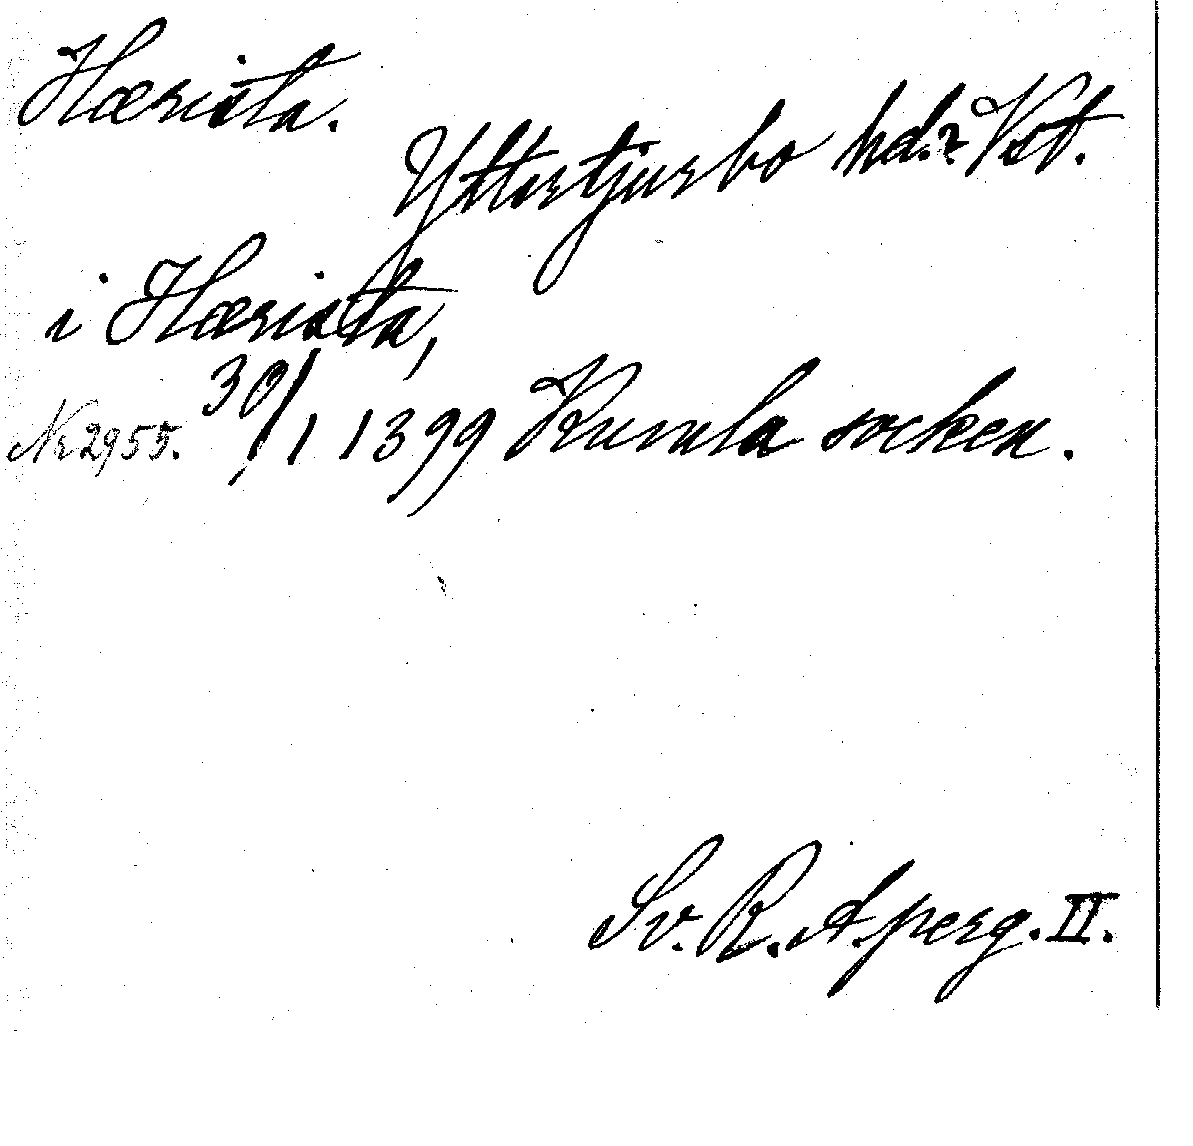 Hærista.
Yttertjurbo hd.r Vst.
i Hærista,
Nr 2955. 30/1 1399 Kumla socken.
Sv. R. A. perg. II.